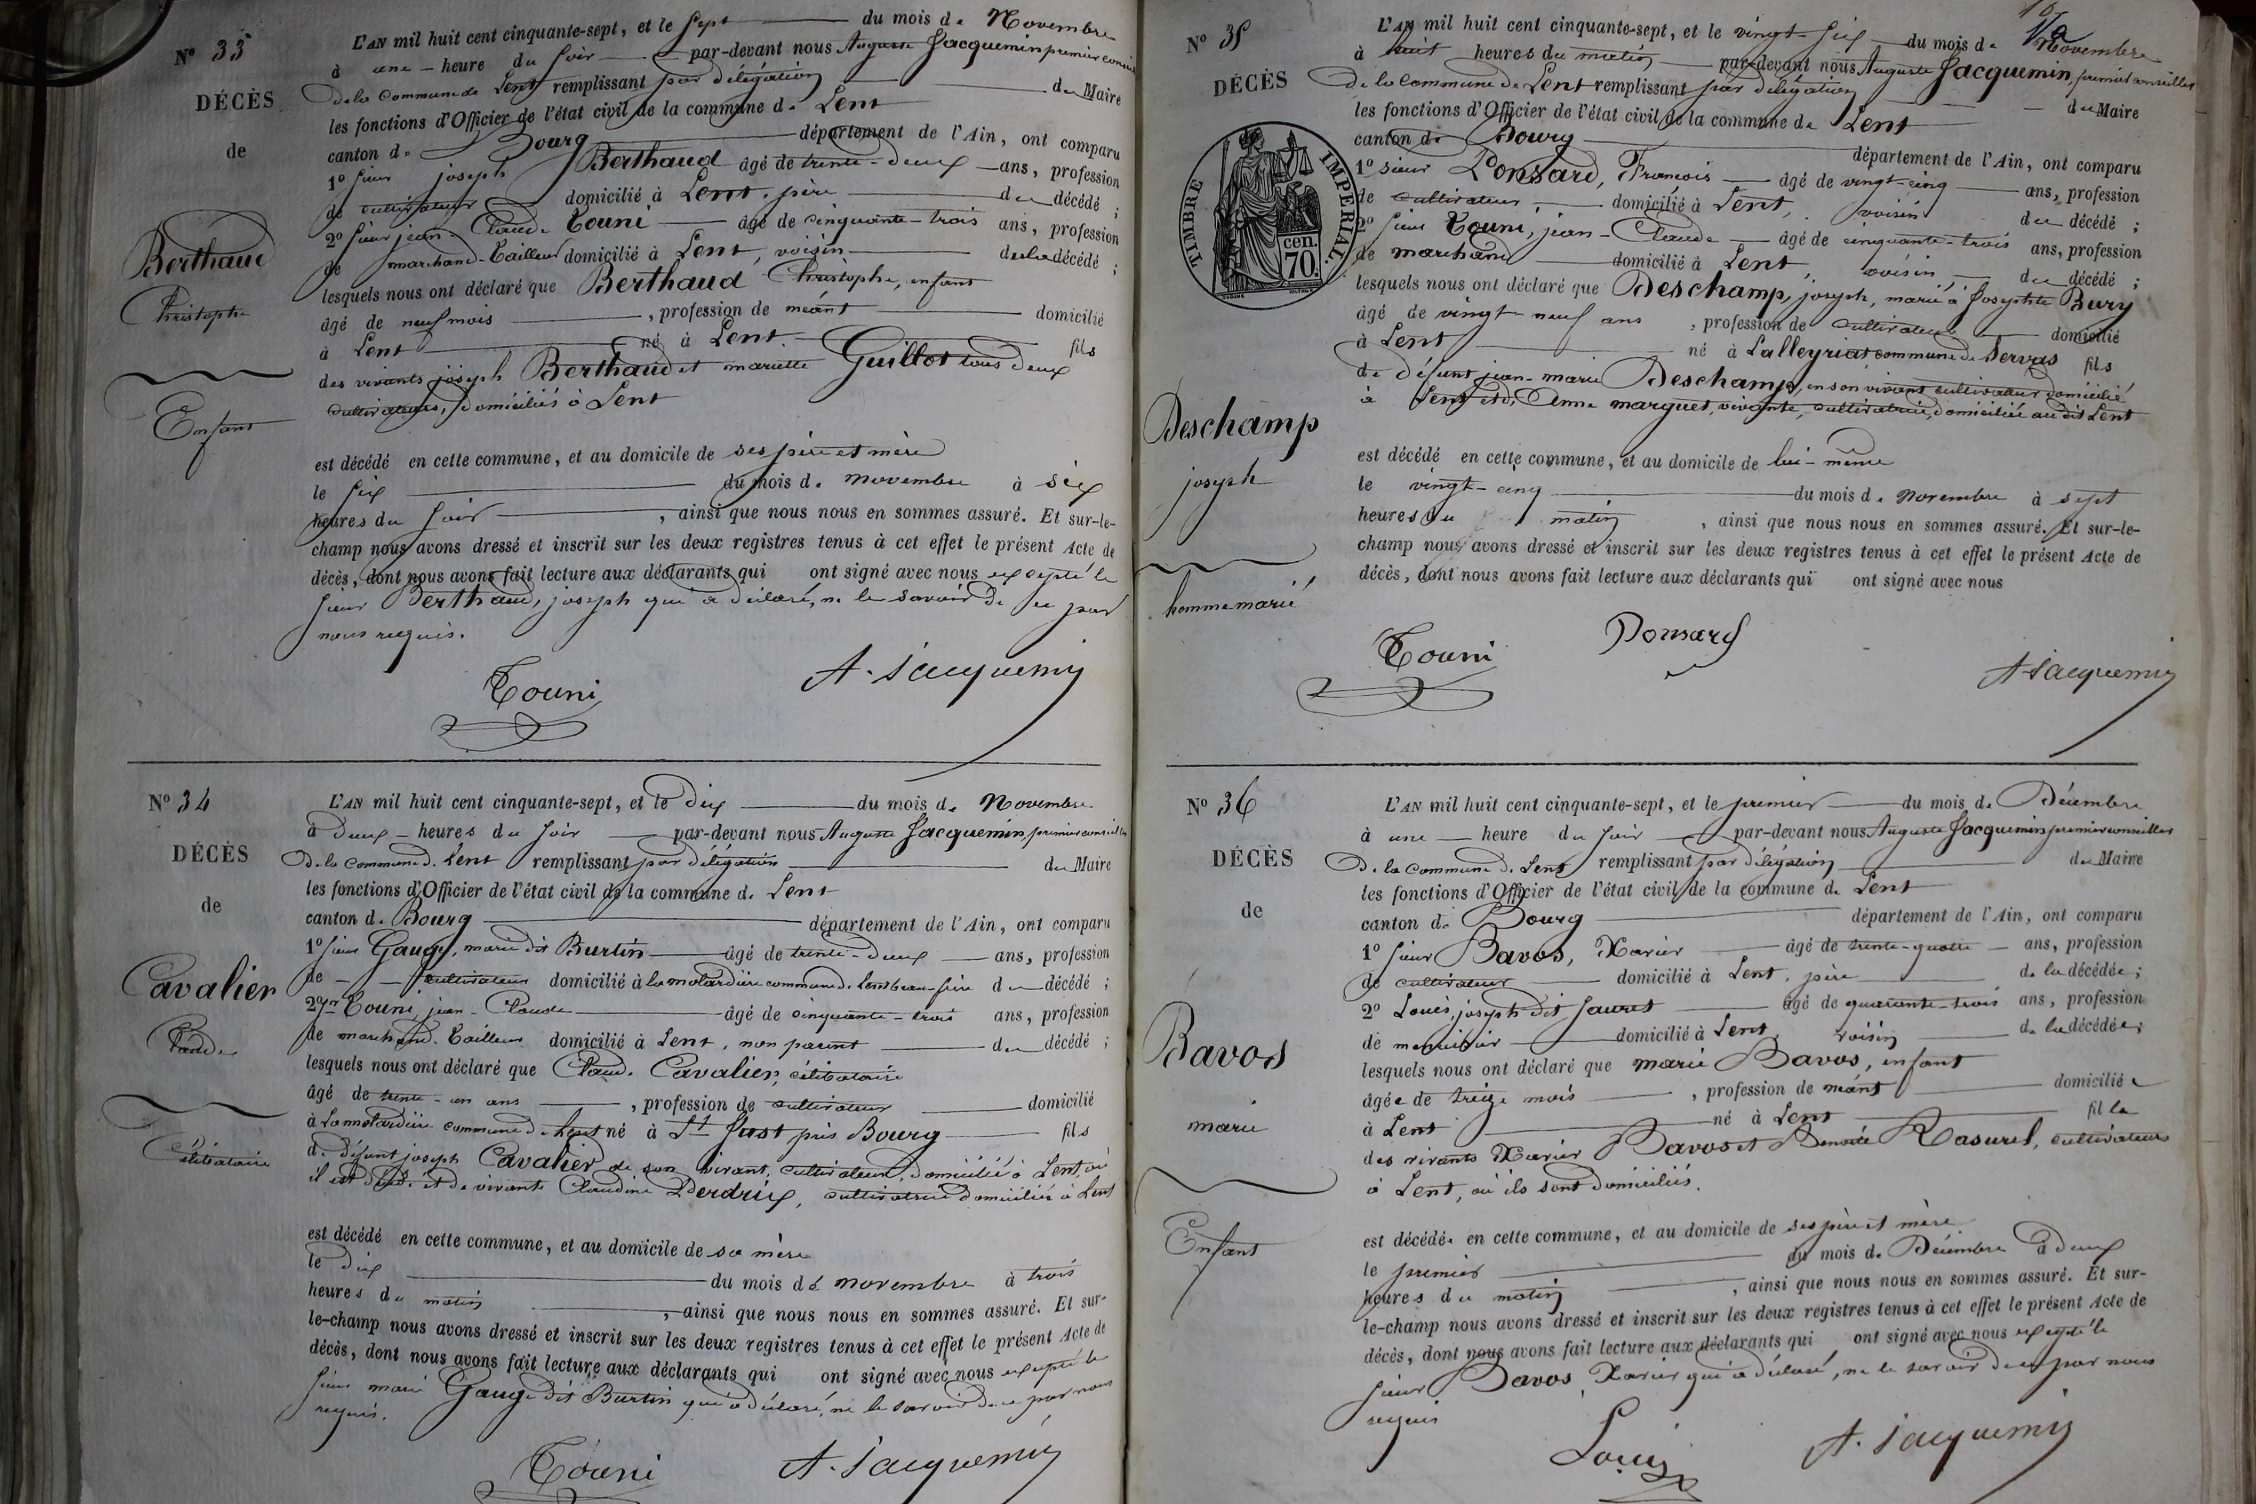 N° 33
DÉCÈS
de
Berthaud
Christophe
Enfant
L'AN mil huit cent cinquante-sept, et le sept du mois de Novembre
à une heure du soir par-devant nous Auguste Jacquemin premier conseiller
de la commune de Lent remplissant par délégation du Maire
les fonctions d'Officier de l'état civil de la commune de Lent
canton de Bourg département de l'Ain, ont comparu
1° sieur joseph Berthaud âgé de trente-deux ans, profession
de cultivateur domicilié à Lent, père du décédé ;
2° sieur jean-Claude Touni âgé de cinquante-trois ans, profession
de marchand-Tailleur domicilié à Lent, voisin du décédé ;
lesquels nous ont déclaré que Berthaud Christophe, enfant
âgé de neuf mois , profession de néant domicilié
à Lent né à Lent fils
des vivants joseph Berthaud et mariette Guillot tous deux
cultivateurs, domiciliés à Lent
est décédé en cette commune, et au domicile de ses père et mère
le six du mois de novembre à six
heures du soir , ainsi que nous nous en sommes assuré. Et sur-le-
champ nous avons dressé et inscrit sur les deux registres tenus à cet effet le présent Acte de
décès, dont nous avons fait lecture aux déclarants qui ont signé avec nous excepté le
sieur Berthaud, joseph qui a déclaré, ne le savoir de ce par
nous requis.
Touni
A. Jacquemin
N° 34
DÉCÈS
de
Cavalier
Claude
Célibataire
L'AN mil huit cent cinquante-sept, et le dix du mois de Novembre
à deux heures du soir par-devant nous Auguste Jacquemin, premier conseiller
de la commune de Lent remplissant par délégation du Maire
les fonctions d'Officier de l'état civil de la commune de Lent
canton de Bourg département de l'Ain, ont comparu
1° sieur Gauge, marie dit Burtin âgé de trente-deux ans, profession
de cultivateur domicilié à la motardière commune de Lent beau-frère du décédé ;
2° Touni, jean-Claude âgé de cinquante-trois ans, profession
de marchand-Tailleur domicilié à Lent, non parent du décédé ;
lesquels nous ont déclaré que Claude Cavalier, célibataire
âgé de trente-un ans , profession de cultivateur domicilié
à La motardière commune de Lent né à St Just près Bourg fils
de défunt joseph Cavalier de son vivant, cultivateur, domicilié à Lent où
il est décédé et de vivante Claudine Perdrix, cultivatrice domiciliée à Lent
est décédé en cette commune, et au domicile de sa mère
le dix du mois de novembre à trois
heures du matin , ainsi que nous nous en sommes assuré. Et sur-
le-champ nous avons dressé et inscrit sur les deux registres tenus à cet effet le présent Acte de
décès, dont nous avons fait lecture aux déclarants qui ont signé avec nous excepté le
sieur marie Gauge dit Burtin qui a déclaré, ne le savoir de ce par nous
requis.
Touni
A. Jacquemin
N° 35
DÉCÈS
TIMBRE IMPÉRIAL.
70 cen.
Deschamp
joseph
homme marié
L'AN mil huit cent cinquante-sept, et le vingt-six du mois de Novembre
à huit heures du matin par-devant nous Auguste Jacquemin, premier conseiller
de la commune de Lent remplissant par délégation du Maire
les fonctions d'Officier de l'état civil de la commune de Lent
canton de Bourg département de l'Ain, ont comparu
1° sieur Ponsard, François âgé de vingt-cinq ans, profession
de cultivateur domicilié à Lent, voisin du décédé ;
2° sieur Touni, jean-Claude âgé de cinquante-trois ans, profession
de marchand domicilié à Lent, voisin du décédé ;
lesquels nous ont déclaré que Deschamp, joseph, marié à Josephte Bury
âgé de vingt neuf ans , profession de cultivateur domicilié
à Lent né à Lalleyriat commune de Servas fils
de défunt jean-marie Deschamp, en son vivant cultivateur domicilié
à Lent et d'Anne marguet, vivante, cultivatrice, domiciliée au dit Lent
est décédé en cette commune, et au domicile de lui-même
le vingt-cinq du mois de novembre à sept
heures du matin , ainsi que nous nous en sommes assuré. Et sur-le-
champ nous avons dressé et inscrit sur les deux registres tenus à cet effet le présent Acte de
décès, dont nous avons fait lecture aux déclarants qui ont signé avec nous
Touni
Ponsard
A. Jacquemin
N° 36
DÉCÈS
de
Bavos
marie
Enfant
L'AN mil huit cent cinquante-sept, et le premier du mois de Décembre
à une heure du soir par-devant nous Auguste Jacquemin premier conseiller
de la commune de Lent remplissant par délégation du Maire
les fonctions d'Officier de l'état civil de la commune de Lent
canton de Bourg département de l'Ain, ont comparu
1° sieur Bavos, Xavier âgé de trente-quatre ans, profession
de cultivateur domicilié à Lent, père de la décédée ;
2° Louis, joseph dit Jauret âgé de quarante-trois ans, profession
de menuisier domicilié à Lent, voisin de la décédée ;
lesquels nous ont déclaré que marie Bavos, enfant
âgée de treize mois , profession de néant domiciliée
à Lent né à Lent fille
des vivants Xavier Bavos et Benoite Rasurel, cultivateurs
à Lent, où ils sont domiciliés.
est décédée en cette commune, et au domicile de ses père et mère
le premier du mois de Décembre à deux
heures du matin , ainsi que nous nous en sommes assuré. Et sur-
le-champ nous avons dressé et inscrit sur les deux registres tenus à cet effet le présent Acte de
décès, dont nous avons fait lecture aux déclarants qui ont signé avec nous excepté le
sieur Bavos, Xavier qui a déclaré, ne le savoir de ce par nous
requis
Louis
A. Jacquemin